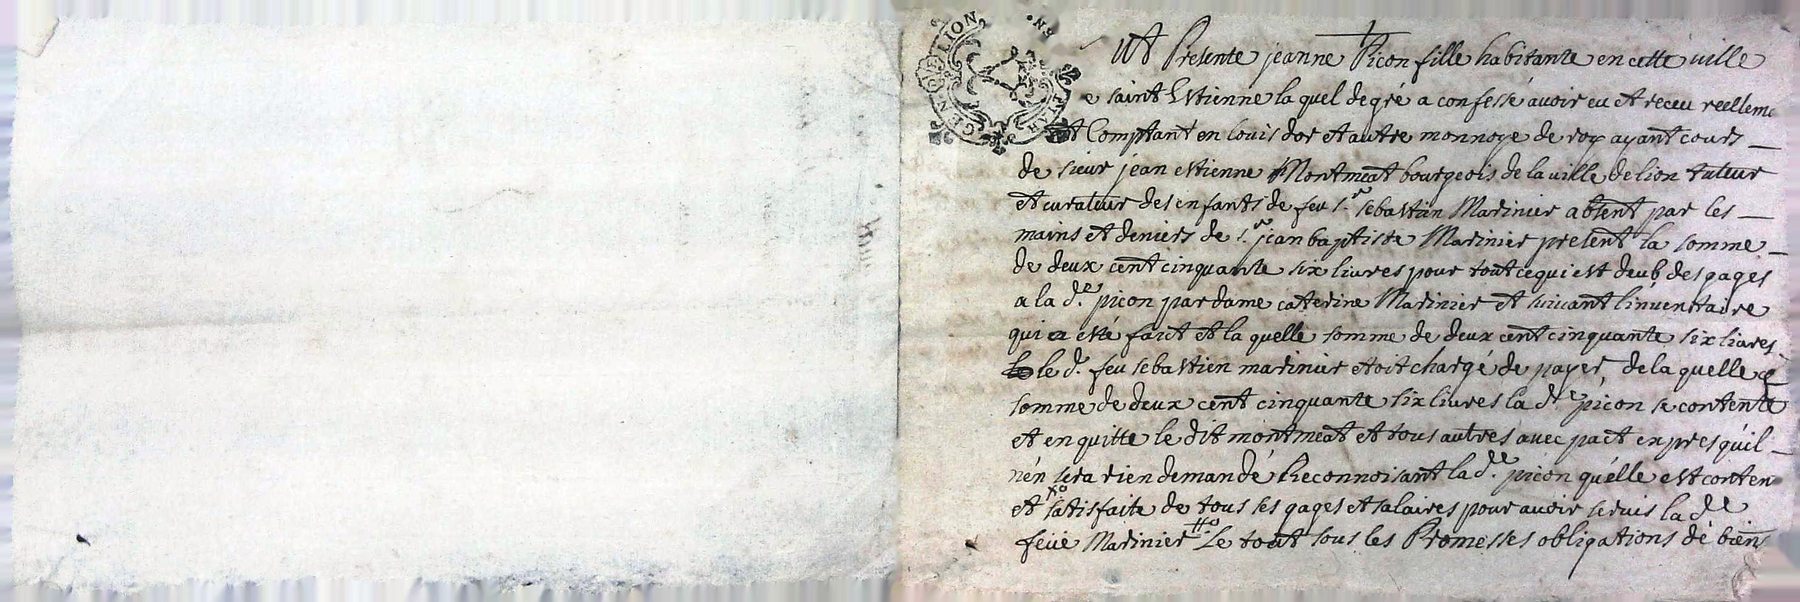 GEN. DE LION
ut Presente jeanne Picon fille habitante en cette ville
e saint Estienne la quel de gré a confessé avoir eu et receu reelleme
et Comptant en louis dor et autre monnoye de roy ayant cours
de sieur jean estienne Montmeat bourgeois de la ville de lion tuteur
et curateur des enfants de feu sr. sebastien Marinier absent par les
mains et deniers de sr. jean baptiste Marinier present la somme
de deux cent cinquante six livres pour tout ce qui est deub des gages
a la de. picon par dame catterine Marinier et suivant linventaire
qui a esté faict et la quelle somme de deux cent cinquante six livres
le d. feu sebastien marinier etoit chargé de payer de la quelle
somme de deux cent cinquante six livres la dte picon se contente
et en quitte le dit montmeat et tous autres avec pact expres qu'il
n'en sera rien demandé Reconnoisant la de. picon qu'elle est conten
et satisfaite de tous ses gages et salaires pour avoir servis la de
feüe Marinier Le tout sous les Promesses obligations de biens